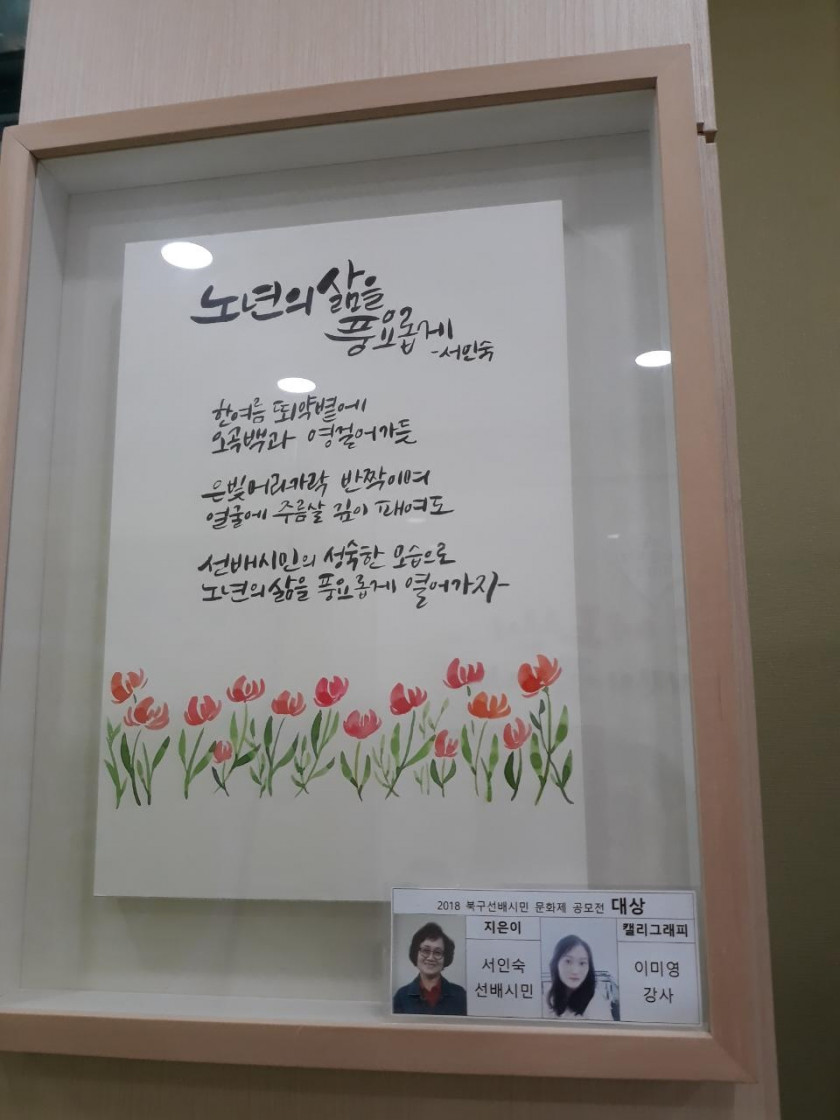 노년의 삶을
풍요롭게
-서인숙
한여름 뙤약볕에
오곡백과 영걸어가듯
은빛머리카락 반짝이며
얼굴에 주름살 깊이 패여도
선배시민의 성숙한 모습으로
노년의 삶을 풍요롭게 열어가자
2018 북구선배시민 문화제 공모전 대상
지은이
서인숙
선배시민
캘리그래피
이미영
강사